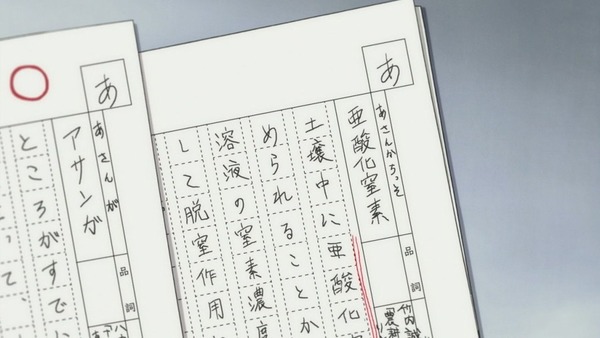 あ
あさんかちっそ
亜酸化窒素
品詞
竹内誠
農耕
土壌中に亜酸化
められることか
溶液の窒素濃度
して脱窒作用
あ
あさんが
アサンガ
品詞
ところがすでに
って、